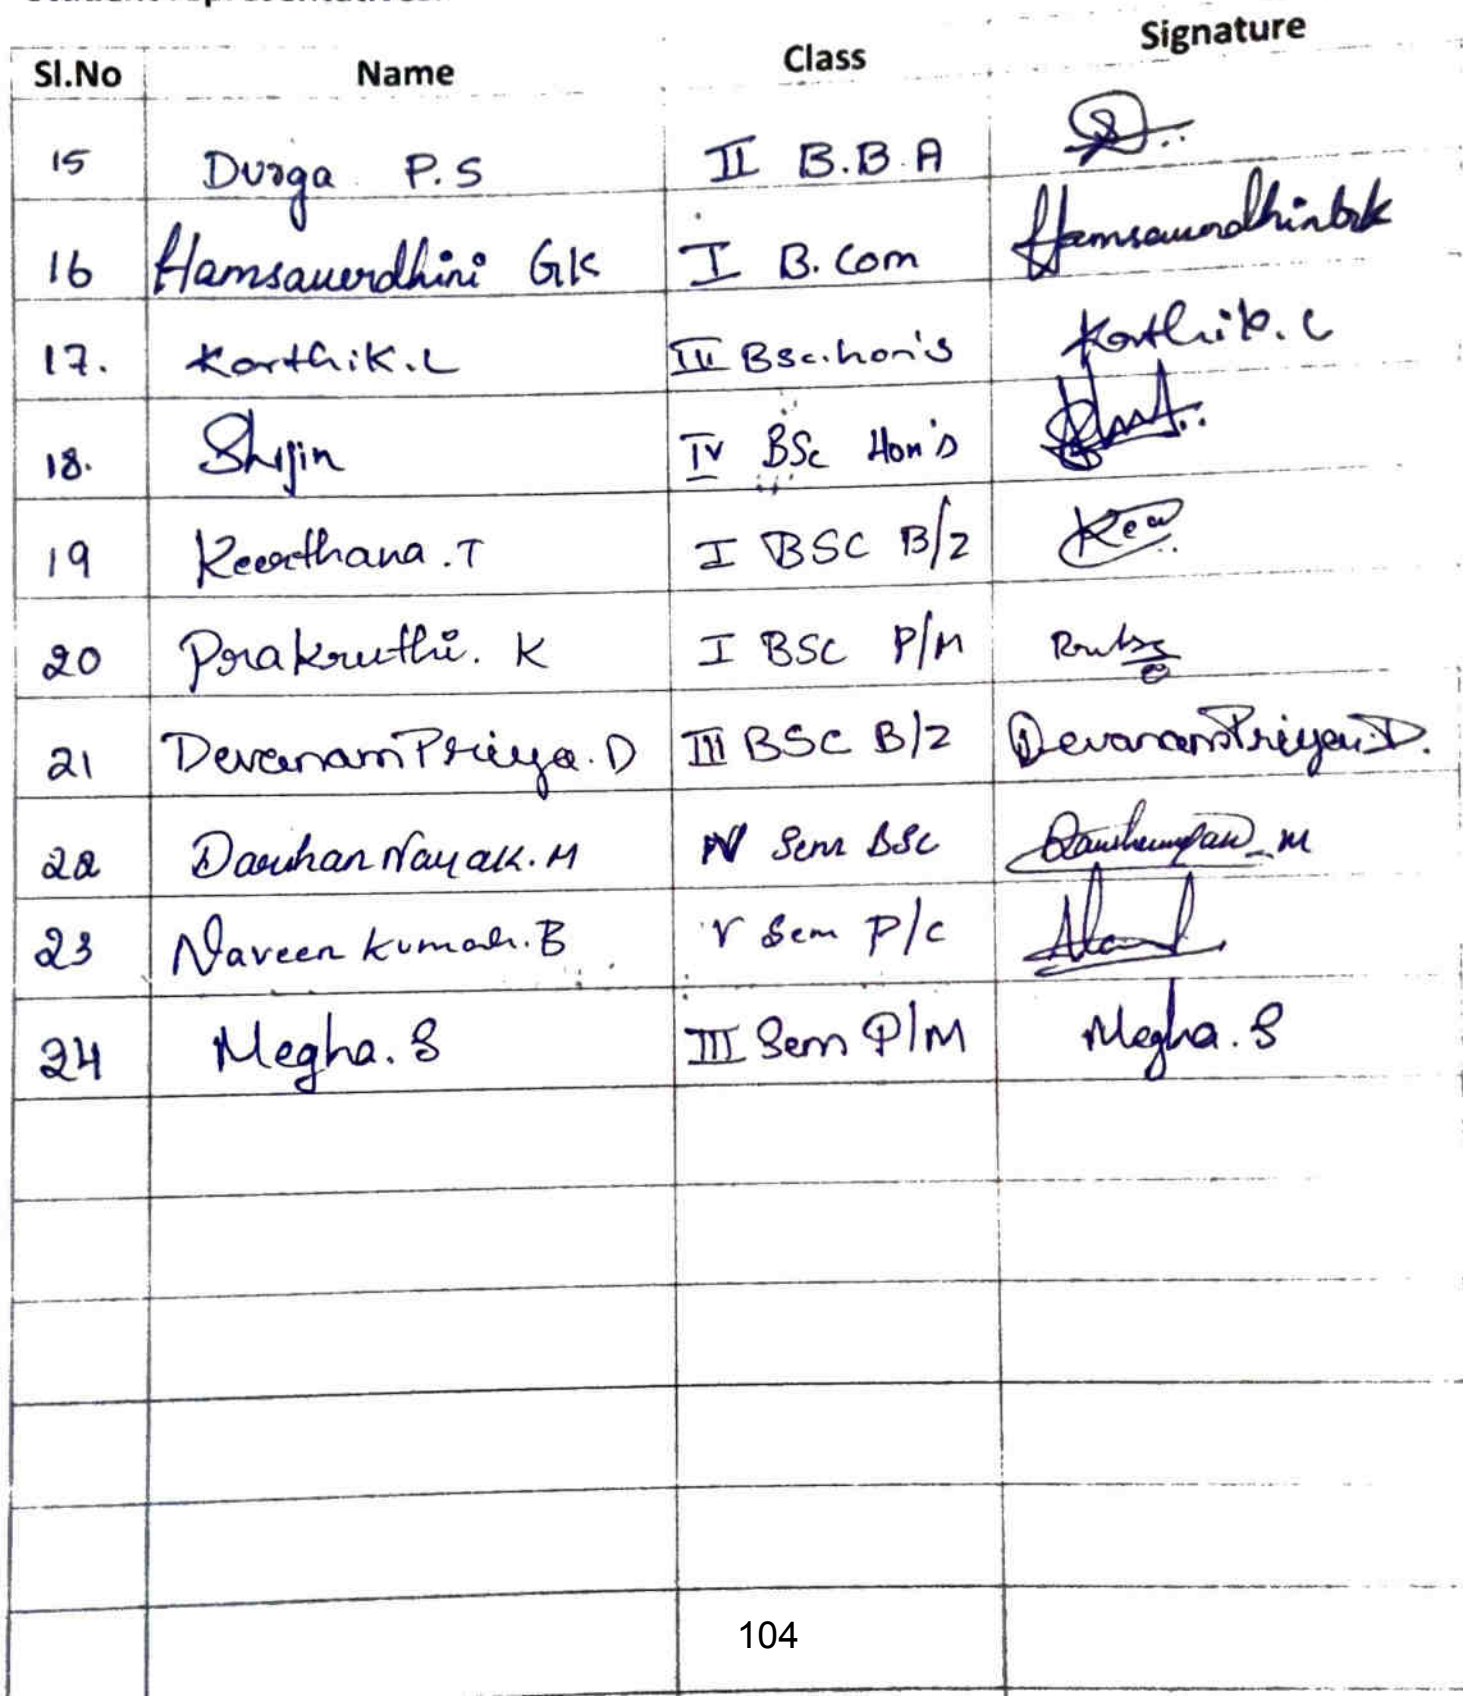 Sl.No Name Class Signature
15 Durga P.S II B.B.A
16 Hamsaverdhini GK I B.Com Hamsaverdhini GK
17. Karthik.L III Bsc.hon's Karthik.L
18. Shijin IV BSc Hon's
19 Keerthana.T I BSC B/Z Kee
20 Prakruthi. K I BSC P/M
21 DevanamPriya.D III BSC B/Z DevanamPriya.D.
22 Darshan Nayak.M IV Sem BSc
23 Naveen Kumar.B V Sem P/C
24 Megha.S III Sem P/M Megha.S
104